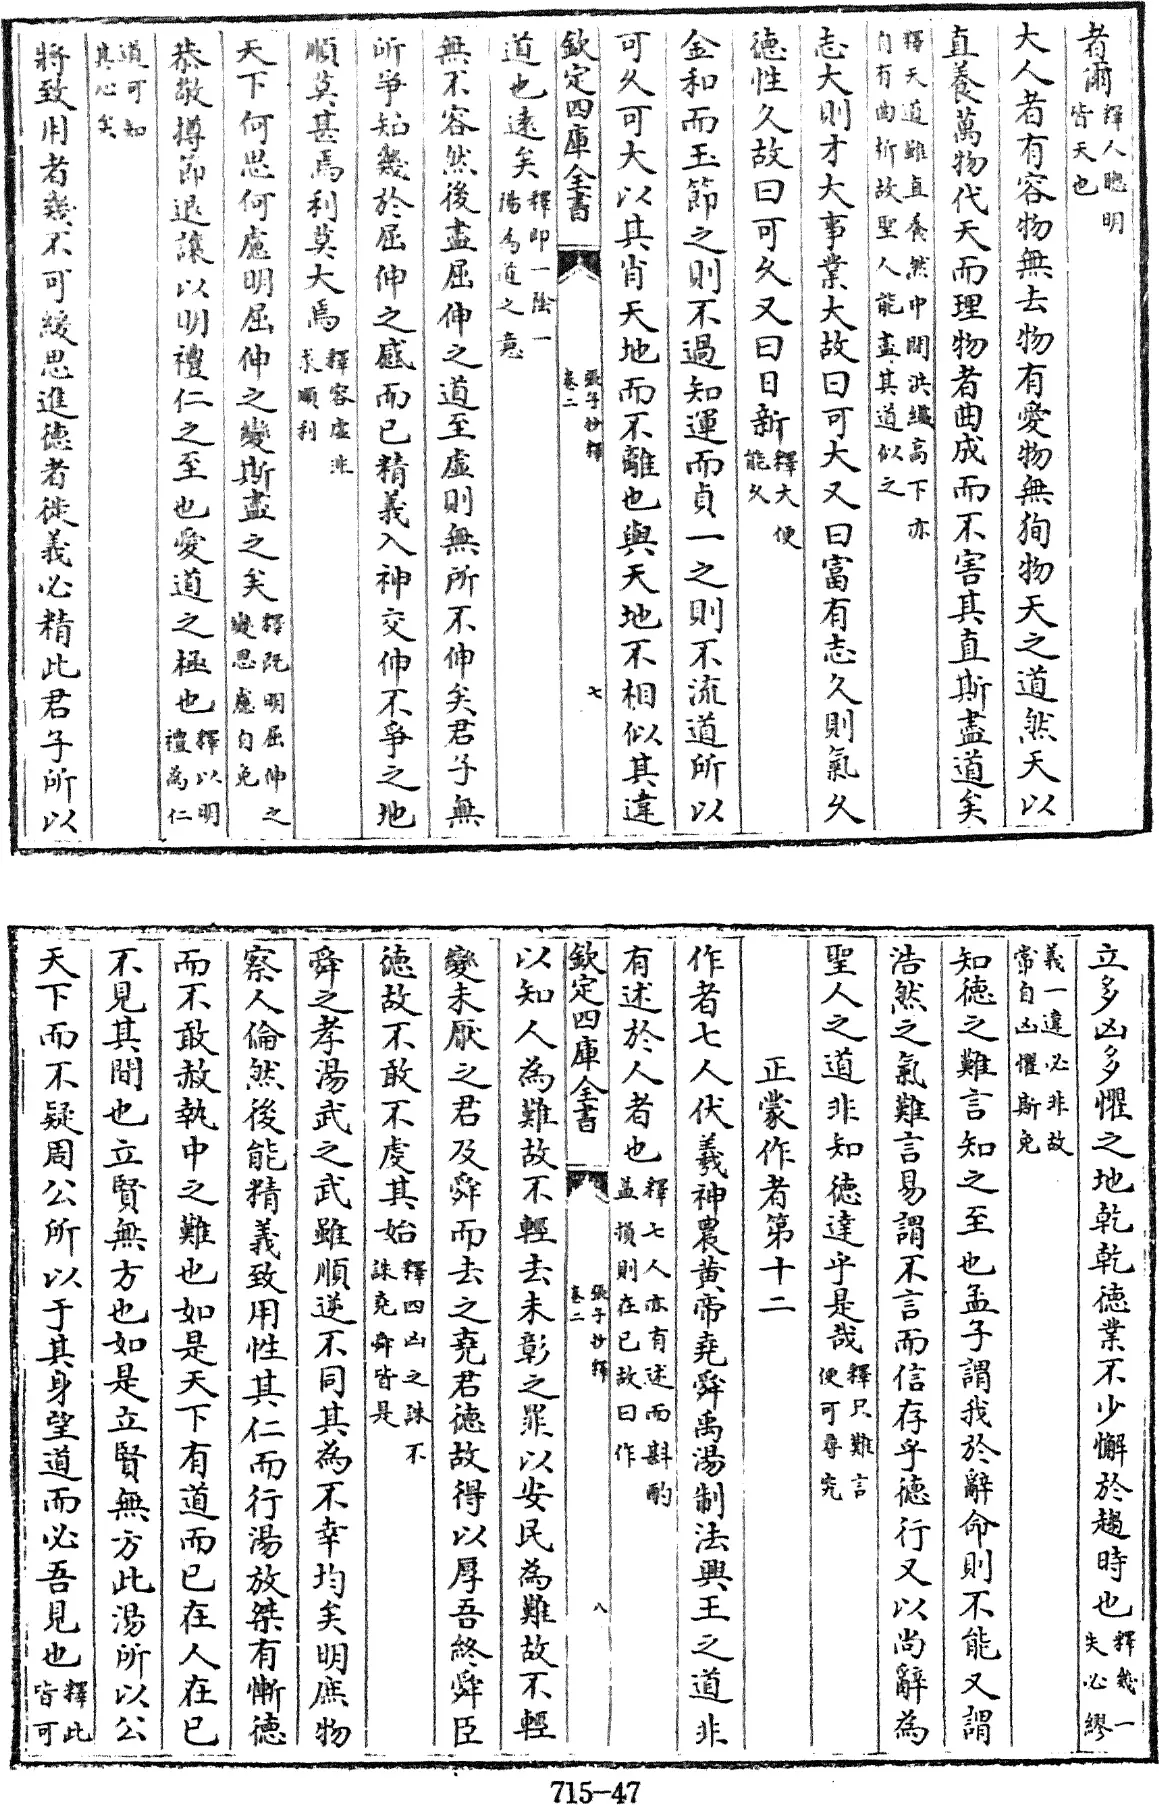 者爾釋人聰明皆天也
大人者有容物無去物有愛物無徇物天之道然天以
直養萬物代天而理物者曲成而不害其直斯盡道矣
釋天道雖直養然中間洪纖高下亦自有曲折故聖人能盡其道似之
志大則才大事業大故曰可大又曰富有志久則氣久
德性久故曰可久又曰日新釋大便能久
金和而玉節之則不過知運而貞一之則不流道所以
可久可大以其肖天地而不離也與天地不相似其違
欽定四庫全書 張子抄釋卷二 七
道也遠矣釋即一陰一陽為道之意
無不容然後盡屈伸之道至虛則無所不伸矣君子無
所爭知幾於屈伸之感而已精義入神交伸不爭之地
順莫甚焉利莫大焉釋容虛非求順利
天下何思何慮明屈伸之變斯盡之矣釋旣明屈伸之變思慮自免
恭敬撙節退讓以明禮仁之至也愛道之極也釋以明禮為仁
道可知其心矣
將致用者幾不可緩思進德者徙義必精此君子所以
立多凶多懼之地乾乾德業不少懈於趨時也釋幾一失必繆
義一違必非故常自凶懼斯免
知德之難言知之至也孟子謂我於辭命則不能又謂
浩然之氣難言易謂不言而信存乎德行又以尚辭為
聖人之道非知德達乎是哉釋只難言便可尋究
正蒙作者第十二
作者七人伏羲神農黃帝堯舜禹湯制法興王之道非
有述於人者也釋七人亦有述而斟酌益損則在已故曰作
欽定四庫全書 張子抄釋卷二 八
以知人為難故不輕去未彰之罪以安民為難故不輕
變未厭之君及舜而去之堯君德故得以厚吾終舜臣
德故不敢不虔其始釋四凶之誅不誅堯舜皆是
舜之孝湯武之武雖順逆不同其為不幸均矣明庶物
察人倫然後能精義致用性其仁而行湯放桀有慚德
而不敢赦執中之難也如是天下有道而已在人在已
不見其間也立賢無方也如是立賢無方此湯所以公
天下而不疑周公所以于其身望道而必吾見也釋此皆可
715-47